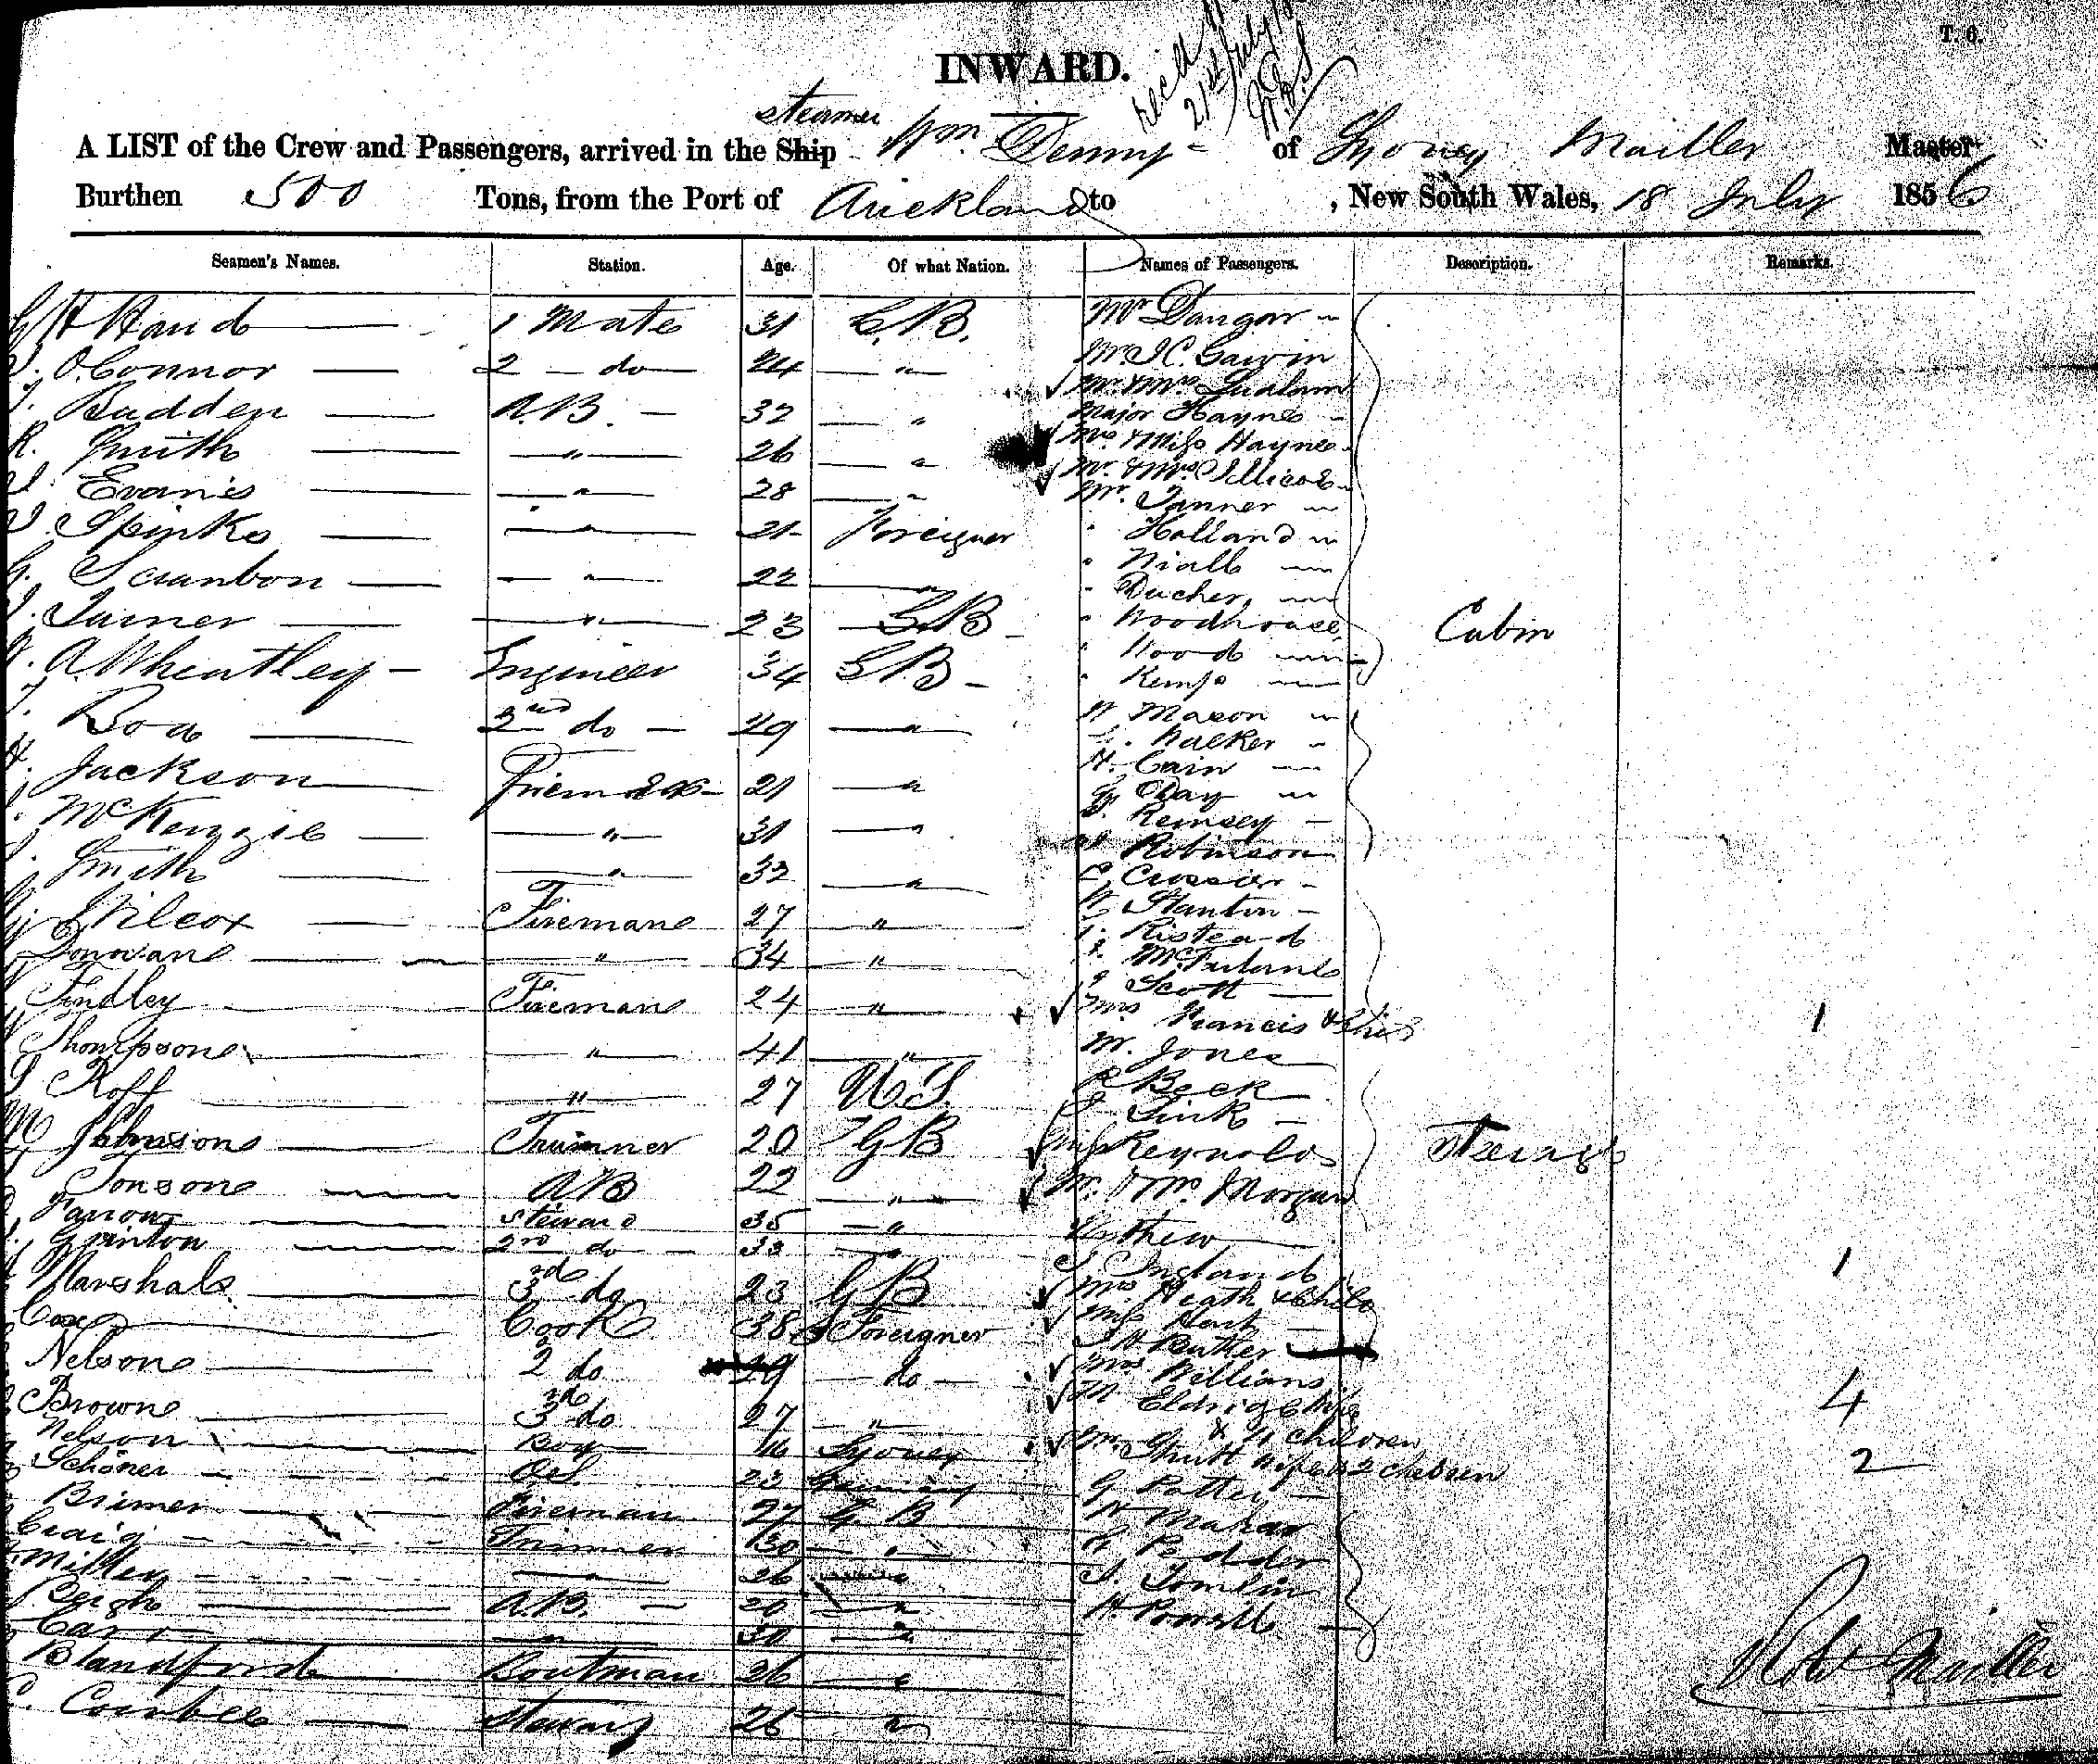 T. 6.
INWARD.
Recd
21st July
steamer
A LIST of the Crew and Passengers, arrived in the Ship Wm. Denny of Sydney Mailler Master
Burthen 500 Tons, from the Port of Auckland to , New South Wales, 18 July 1856
Seamen's Names. Station. Age. Of what Nation. Names of Passengers. Description. Remarks.
H Hand 1 Mate 31 G.B. Mr Dangar
O'Connor 2 do 24 " Mr. J C. Gawin
Mr & Mrs
Budden A.B. 32 " Major Hayne
R. Smith " 26 " Mrs & Miss Hayne
Mr. & Mrs
J. Evans " 28 " Mr. Tanner
J. Spinks " 21 Foreigner " Holland
" Niall
G. Scranton " 22 " " Bucher
J. Turner " 23 G.B " Woodhouse Cabin
" Wood
A. Wheatley Engineer 34 G.B " Kemp
Boa 2nd do 29 " W Mason
Walker
Jackson Fireman 21 " H. Cain
Day
McKenzie " 31 " Remsey
Robinson
Smith " 32 " Crossier
Wilcox Fireman 27 " W Stanton
Ristead
Donovan " 34 " McFarlane
Findley Fireman 24 " Scott
Mrs Francis & Child 1
Thompson " 41 " M. Jones
Roff " 27 U.S. Beck
Sink
Johnson Trimmer 20 G B Miss Reynolds Steerage
Jonson AB 22 " Mr. & Mrs Morgan
Farrow Steward 35 "
Grinton 2nd do 33 "
J England
Marshal 3rd do 23 G B Mrs Heath & Child 1
Cox Cook 38 Foreigner Miss Hart
Butler
Nelson 2 do 29 do Mrs Williams
Brown 3rd do 27 " M Eldrige Wife
& 4 children 4
Nelson Boy 16 Sydney Mr. Shutt wife & 2 children 2
Schoner OS 23 Germany G Potter
Brimer Fireman 27 G B W Mahar
Craig Trimmer 30 "
Miller " 26 " J. Tomlin
Leigh A.B. 20 " H. Powell
Carr " 30 "
Blandford Boatman 26 "
C. Coombes Steward 26 "
Robt Mailler